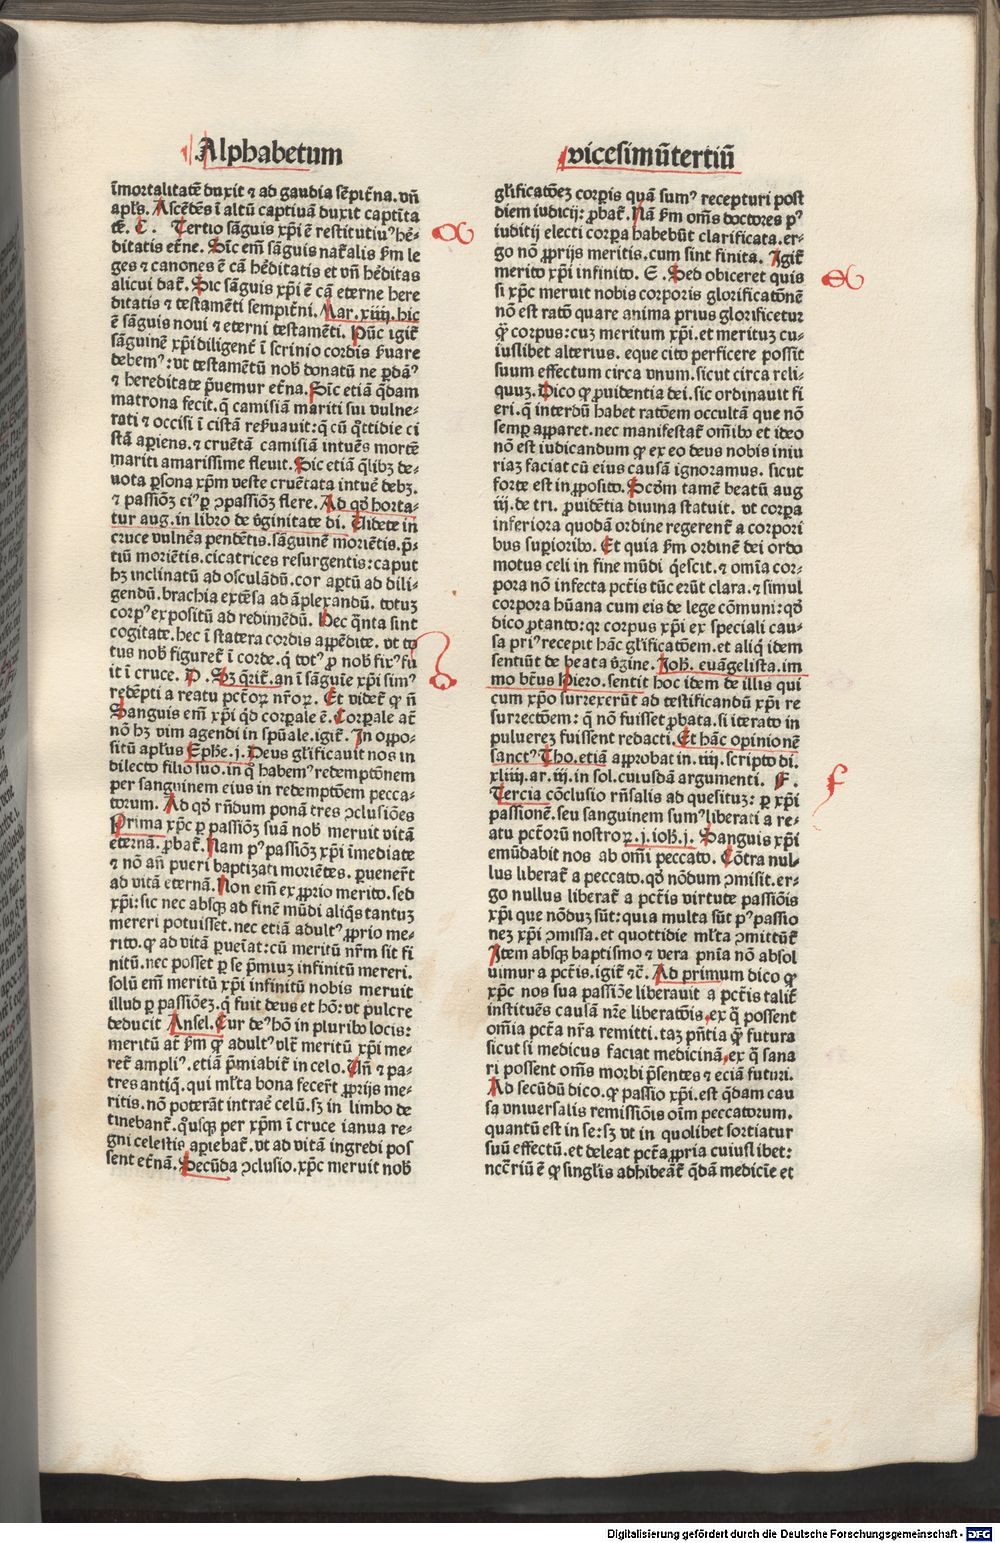 Alphabetum
vicesimũtertiũ
īmortalitatē duxit ⁊ ad gaudia sēpit̃na. vñ
apl̓s. Ascēdēs ī altũ captiuā duxit captiῑta
tē. C. Tertio sāguis xp̄i ē restitutiuꝰ hẽ⸗
ditatis et̃ne. Sic em̄ sāguis nat̃alis ẜm le
ges ⁊ canones ē cā hẽditatis et vñ hẽditas
alicui dat̃. Sic sāguis xp̄i ē cā eterne here
ditatis ⁊ testamēti sempit̃ni. Mar. xiiij. hic
ē sāguis noui ⁊ eterni testamēti. Hũc igit̃
sāguinē xp̄i diligent̃ ī scrinio cordis ẜuare
debemꝰ: vt testamētũ nob̓ donatũ ne ꝑdāꝰ
⁊ hereditate p̃uemur et̃na. Sic etiā q̄dam
matrona fecit. q̄ camisiā mariti sui vulne⸗
rati ⁊ occisi ī cistā reẜuauit: q̄ cũ q̊ttidie ci
stā aꝑiens. ⁊ cruētā camisiā intuēs mortē
mariti amarissime fleuit. Sic etiā q̄libꝫ de⸗
uota ꝑsona xp̄m veste cruētata intuē debꝫ.
⁊ passiōꝫ eiꝰ ꝑ ꝯpassiōꝫ flere. Ad qđ horta⸗
tur aug. in libro de v̓ginitate di. Uidete in
cruce vulnēa pendētis. sāguinē moriētis. p̄⸗
tiũ moriētis. cicatrices resurgentis: caput
hꝫ inclinatũ ad osculādũ. cor aꝑtũ ad dili⸗
gendũ. brachia extēsa ad āplexandũ. totuꝫ
corpꝰ expositũ ad redimēdũ. Hec q̄nta sint
cogitate. hec ī statera cordis apꝑēdite. vt to
tus nob̓ figuret̃ ī corde. q̇ totꝰ ꝓ nob̓ fixꝰ fu
it ī cruce. D. Sꝫ q̄rit̃. an ī sāguīe xp̄i simꝰ
redēpti a reatu pct̃oꝝ nr̃oꝝ. Et videt̃ ꝙ ñ
Sanguis em̄ xp̄i q̇d corpale ē. Corpale at̃
nō hꝫ vim agendi in spũale. igit̃. In oppo⸗
sitũ apl̓us Ephe. j. Deus gl̓ificauit nos in
dilecto filio suo. in q̊ habemꝰ redemptōnem
per sanguinem eius in redemptōem pecca⸗
torum. Ad qđ rñdum ponā tres ꝯclusiōes
Prima xp̄c ꝑ passiōꝫ suā nob̓ meruit vitā
eternā. ꝓbat̃. Nam pꝰ passiōꝫ xp̄i īmediate
⁊ nō añ pueri baptizati moriētes. ꝑuener̃t
ad vitā eternā. Non em̄ ex ꝓprio merito. sed
xp̄i: sic nec absqꝫ ad finē mũdi aliq̄s tantuꝫ
mereri potuisset. nec etiā adultꝰ ꝓprio me⸗
rito. ꝙ ad vitā ꝑueñat: cũ meritũ nr̃m sit fi
nitũ. nec posset ꝑ se p̄miuꝫ infinitũ mereri.
solũ em̄ meritũ xp̄i infinitũ nobis meruit
illud ꝑ passiōeꝫ. q̇ fuit deus et hō: vt pulcre
deducit Ansel. Cur deꝰ hō in pluribꝰ locis:
meritũ at̃ ẜm ꝙ adultꝰ vlt̃ meritũ xp̄i me⸗
ret̃ ampliꝰ. etiā p̄miabit̃ in celo. Uñ ⁊ pa⸗
tres antiq̇. qui ml̃ta bona fecer̃t ꝓprijs me⸗
ritis. nō poterāt intrae celũ. sꝫ in limbo de
tinebant̃. q̊usqꝫ per xp̄m ī cruce ianua re⸗
gni celestis aꝑiebat̃. vt ad vitā ingredi pos
sent et̃nā. Secũda ꝯclusio. xp̄c meruit nob̓
gl̓ificatōeꝫ corꝑis quā sumꝰ recepturi post
diem iudicij: ꝓbat̃. Nā ẜm om̄s doctores pꝰ
iuditij electi corꝑa habebũt clarificata. er⸗
go nō ꝓprijs meritis. cum sint finita. Igit̃
merito xp̄i infinito. E. Sed obiceret quis
si xp̄c meruit nobis corporis glorificatōnē
nō est ratō quare anima prius glorificetur
ꝙ̄ corpus: cuꝫ meritum xp̄i. et merituꝫ cu⸗
iuslibet alterius. eque cito perficere possit
suum effectum circa vnum. sicut circa reli⸗
quuꝫ. Dico ꝙ ꝓuidentia dei. sic ordinauit fi
eri. q̄ interdũ habet ratōem occultā que nō
semꝑ apparet. nec manifestat̃ om̄ibꝰ et ideo
nō est iudicandum ꝙ ex eo deus nobis iniu
riaꝫ faciat cũ eius causā ignoramus. sicut
forte est in ꝓposito. Scd̓m tamē beatũ aug
iij. de tri. ꝓuidētia diuina statuit. vt corpa
inferiora quodā ordine regerent̃ a corpori
bus suꝑioribꝰ. Et quia ẜm ordinē dei ordo
motus celi in fine mũdi q̇escit. et om̄ia cor⸗
pora nō infecta pct̃is tũc erũt clara. ⁊ simul
corpora hũana cum eis de lege cōmuni: qđ
dico ꝓtanto: qꝛ corpus xp̄i ex speciali cau⸗
sa priꝰ recepit hāc gl̓ificatōem. et aliq̇ idem
sentiũt de beata v̓gine. Joh̓. euāgelista. im
mo bt̃us Hiero. sentit hoc idem de illis qui
cum xp̄o surrexerũt ad testificandũ xp̄i re
surrectōem: q̄ nō fuisset ꝓbata. si iterato in
puluereꝫ fuissent redacti. Et hāc opinionē
sanctꝰ Tho. etiā approbat in. iiij. scripto di.
xliiij. ar. iij. in sol. cuiusdā argumenti. F.
Tercia cōclusio rñsalis ad quesituꝫ: ꝑ xp̄i
passionē. seu sanguinem sumꝰ liberati a re⸗
atu pct̃orũ nostroꝝ. j. ioh̓. j. Sanguis xp̄i
emũdabit nos ab om̄i peccato. Cōtra nul⸗
lus liberat̃ a peccato. qđ nōdum ꝯmisit. er⸗
go nullus liberat̃ a pct̃is virtute passiōis
xp̄i que nōduꝫ sũt: quia multa sũt pꝰ passio
neꝫ xp̄i ꝯmissa. et quottidie ml̃ta ꝯmittũt̃
Item absqꝫ baptismo ⁊ vera pnīa nō absol
uimur a pct̃is. igit̃ ⁊c̃. Ad primum dico ꝙ
xp̄c nos sua passiōe liberauit a pct̃is talit̃
instituēs causā nr̃e liberatōis. ex q̄ possent
om̄ia pct̃a nr̃a remitti. taꝫ pñtia ꝙ̄ futura
sicut si medicus faciat medicinā. ex q̄ sana
ri possent om̄s morbi p̄sentes ⁊ eciā futuri.
Ad secũdũ dico. ꝙ passio xp̄i. est q̄dam cau
sa vniuersalis remissiōis oīm peccatorum.
quantũ est in se: sꝫ vt in quolibet sortiatur
suũ effectũ. et deleat pct̃a ꝓpria cuiuslibet:
ncc̃riũ ē ꝙ singl̓is adhibeāt̃ q̄dā medicīe et
f
Digitalisierung gefördert durch die Deutsche Forschungsgemeinschaft - DFG